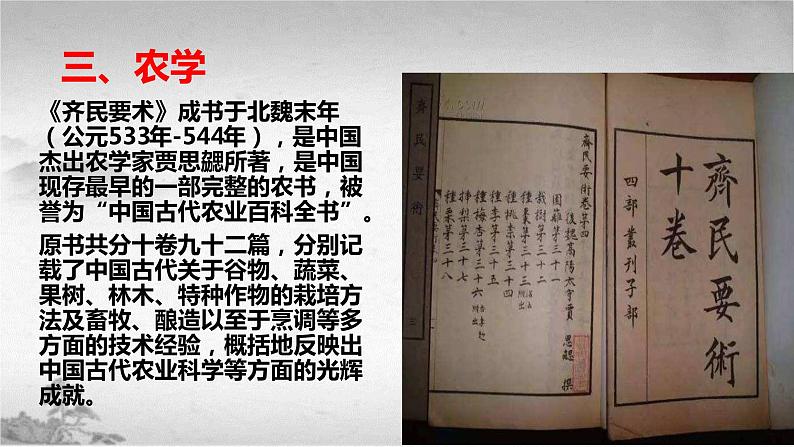 三、农学
《齐民要术》成书于北魏末年
（公元533年-544年），是中国
杰出农学家贾思勰所著，是中国
现存最早的一部完整的农书，被
誉为“中国古代农业百科全书”。
原书共分十卷九十二篇，分别记
载了中国古代关于谷物、蔬菜、
果树、林木、特种作物的栽培方
法及畜牧、酿造以至于烹调等多
方面的技术经验，概括地反映出
中国古代农业科学等方面的光辉
成就。
齊民要術
十卷
四部叢刊子部
齊民要術卷第四
後魏高陽太守賈 思勰 撰
園籬第三十一
栽樹第三十二
種棗第三十三
種桃柰第三十四
種李第三十五
種梅杏第三十六
插梨第三十七
種栗第三十八
齊民要術
三
.com